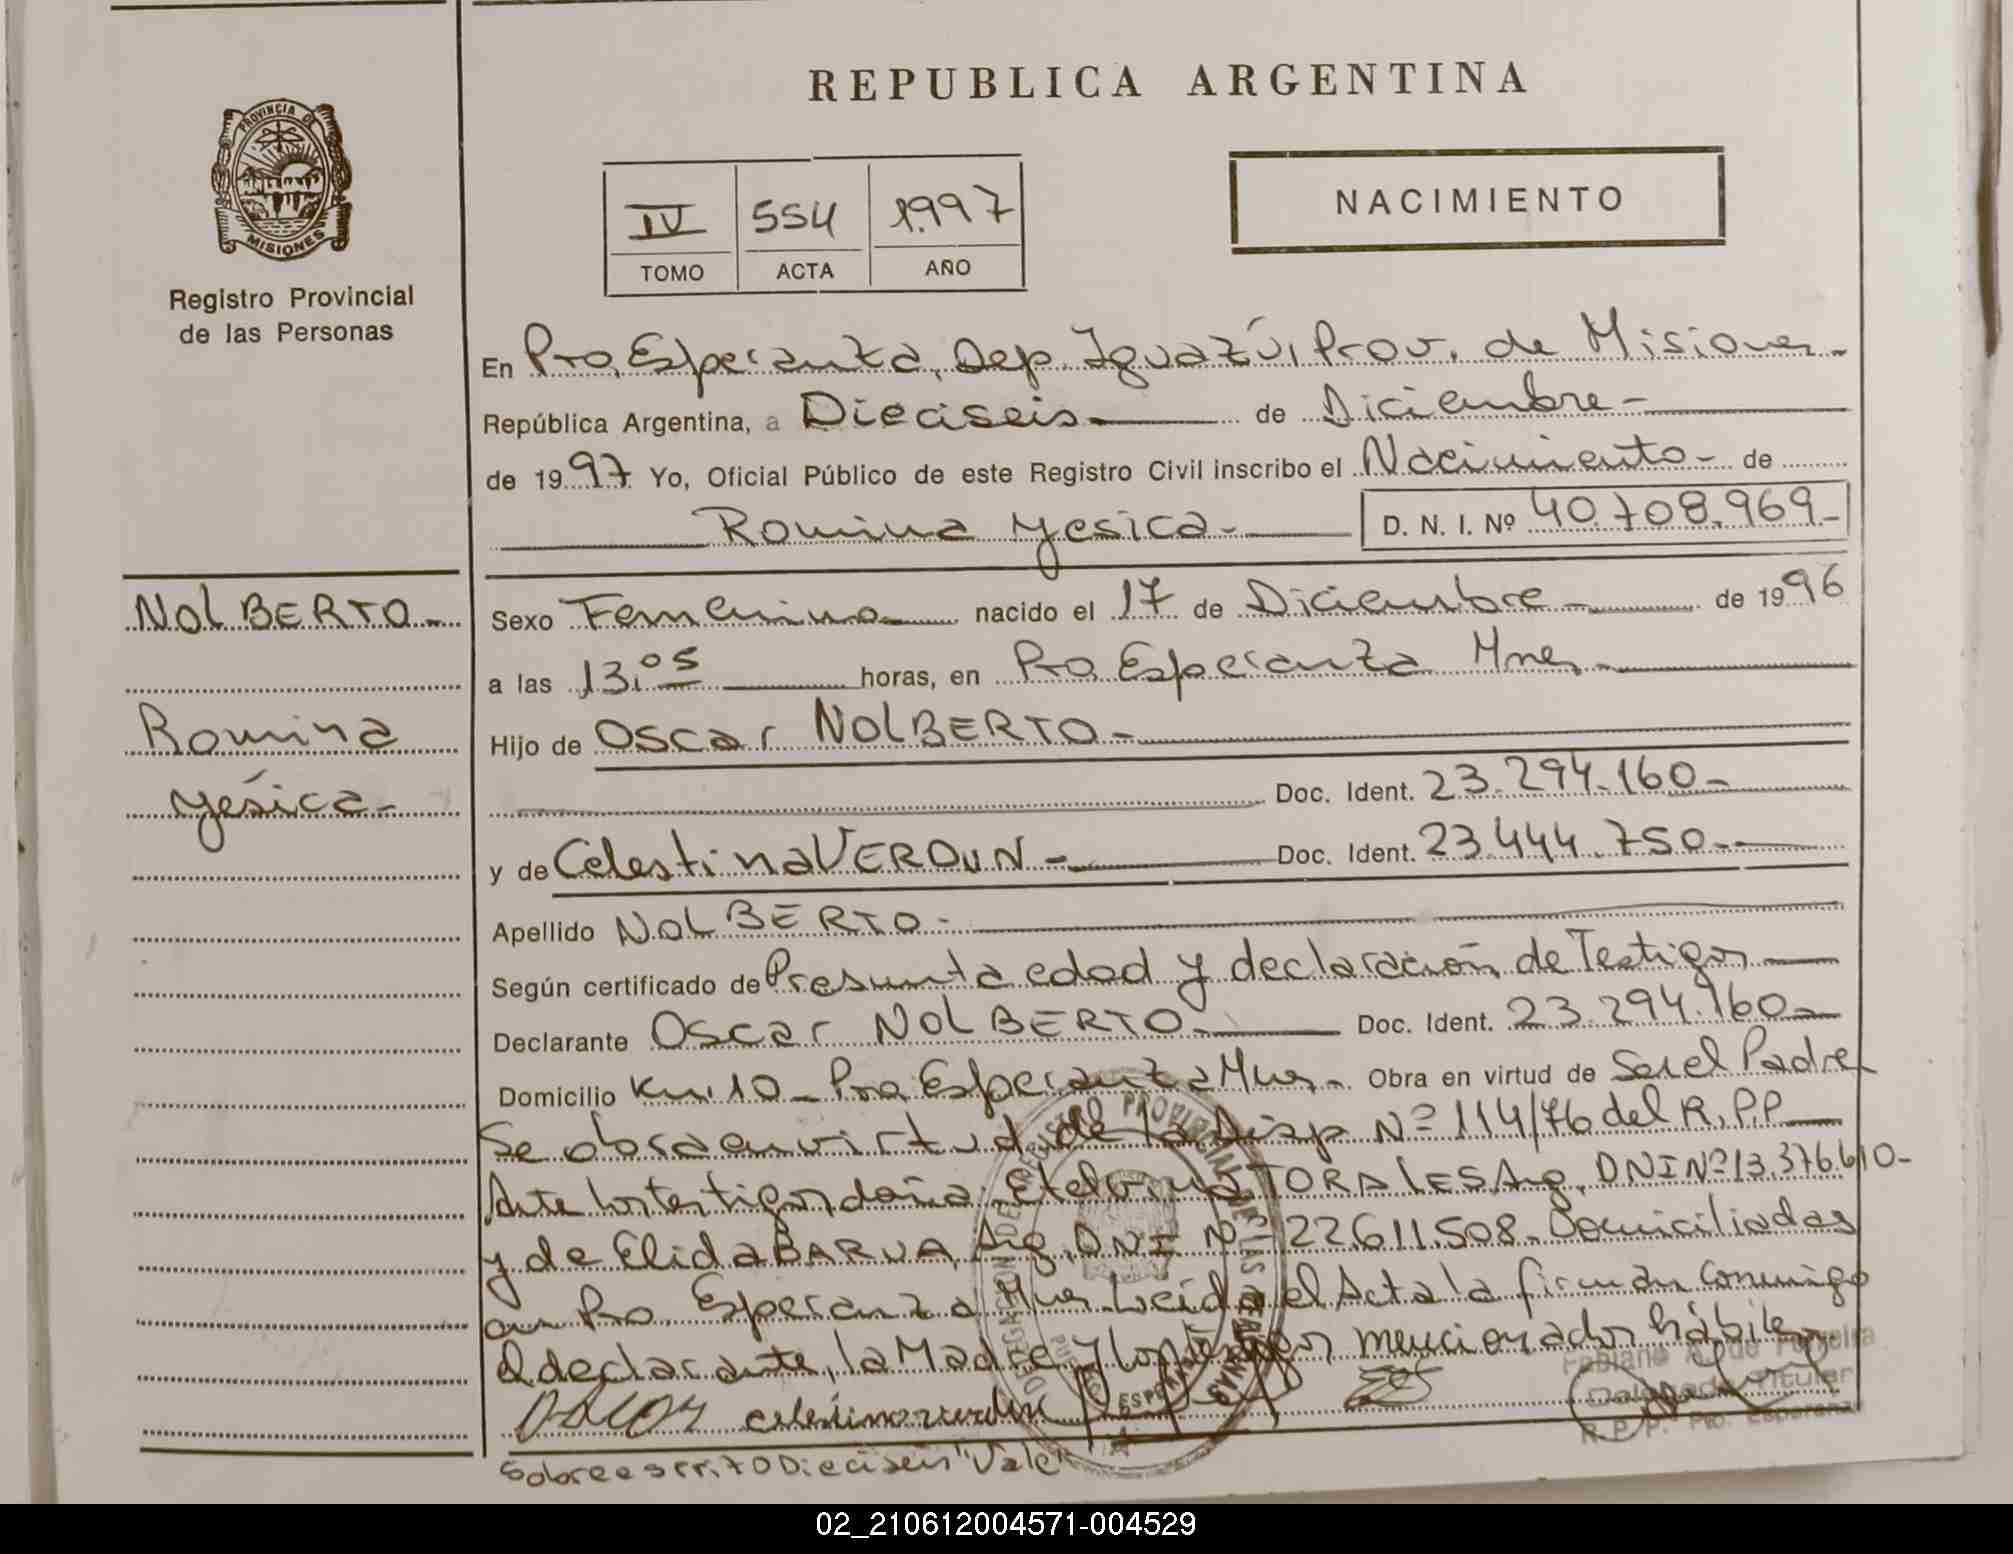 REPUBLICA ARGENTINA
PROVINCIA DE
MISIONES
Registro Provincial
de las Personas
IV 554 1997
TOMO ACTA AÑO
NACIMIENTO
En Pto. Esperanza, Dep. Iguazú, Prov. de Misiones-
República Argentina, a Dieciseis de Diciembre-
de 1997 Yo, Oficial Público de este Registro Civil inscribo el Nacimiento- de
Romina Yesica- D. N. I. Nº 40.708.969-
NOLBERTO-
Romina
Yésica-
Sexo Femenino nacido el 17 de Diciembre- de 1996
a las 13:05 horas, en Pto. Esperanza Mnes-
Hijo de Oscar NOLBERTO-
Doc. Ident. 23.294.160-
y de Celestina VERDUN- Doc. Ident. 23.444.750-
Apellido NOLBERTO-
Según certificado de Presunta edad y declaración de Testigos
Declarante Oscar NOLBERTO- Doc. Ident. 23.294.160-
Domicilio Km. 10- Pto. Esperanza Mnes- Obra en virtud de Ser el Padre
Se obra en virtud de la Disp Nº 114/76 del R.P.P
Ante los testigos doña Etelvina TORALES Arg. DNI Nº 13.376.610-
y de Elida BARUA, Arg. DNI Nº 22.611.508- Domiciliadas
en Pto. Esperanza Mnes- Leída el Acta la firman conmigo
el declarante, la Madre y los testigos mencionados hábiles-
celestina verdun
Delegado Titular
R. P. P. Pto. Esperanza
Sobreescrito Dieciseis "Vale"
02_210612004571-004529